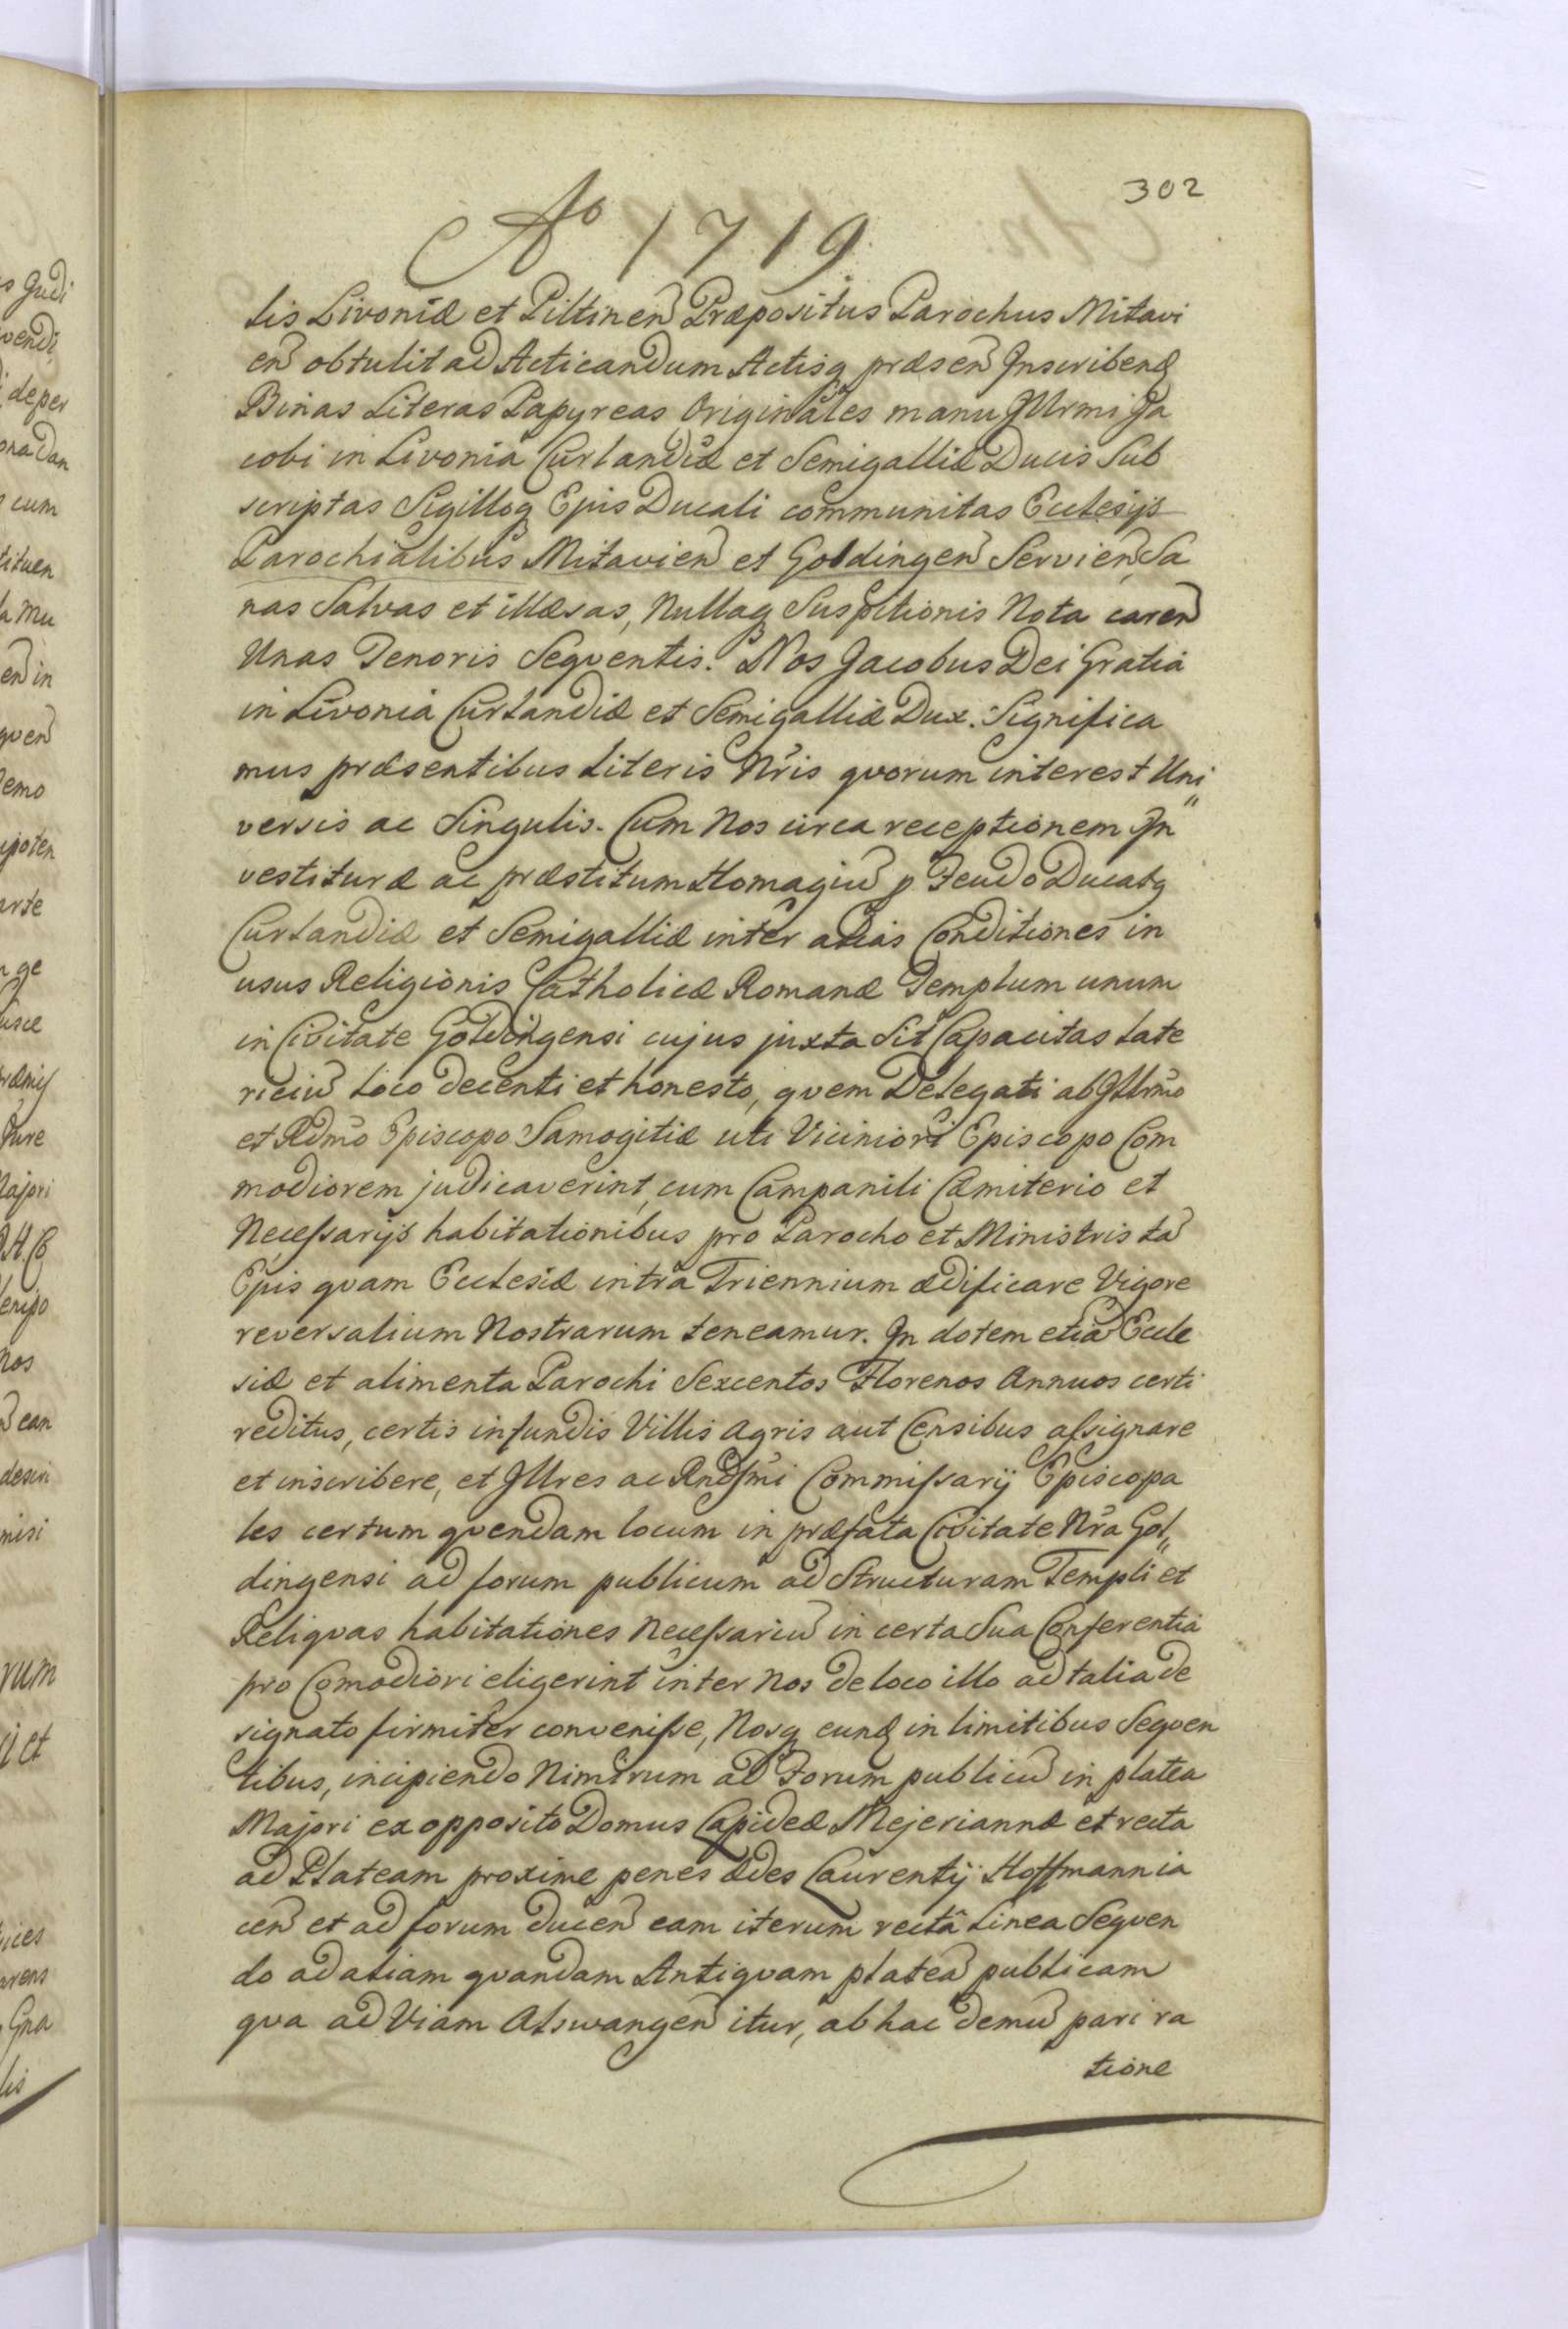 302
Ao 1719
lis Livoniæ et Piltinen Præpositus Parochus Mitavi
en obtulit ad Acticandum Actisq præsen Inscribend
Binas Literas Papyreas Originales manu Illrmi Ja
cobi in Livonia Curlandiæ et Semigalliæ Ducis Sub
scriptas Sigilloq Ejus Ducali communitas Ecclesijs
Parochialibus Mitavien et Goldingen Servien, Sa
nas Salvas et illæsas, Nullaq Suspitionis Nota caren
Unas Tenoris Seqventis. Nos Jacobus Dei Gratia
in Livonia Curlandiæ et Semigalliæ Dux. Significa
mus præsentibus Literis Nris qvorum interest Uni
versis ac Singulis. Cum Nos circa receptionem In
vestituræ ac præstitum Homagiu p Feudo Ducatq
Curlandiæ et Semigalliæ inter alias Conditiones in
usus Religionis Catholicæ Romanæ Templum unum
in Civitate Goldingensi cujus juxta Sit Capacitas Late
riciu Loco decenti et honesto, qvem Delegati ab Illrmo
et Rdmo Episcopo Samogitiæ uti Viciniori Episcopo Com
modiorem judicaverint, cum Campanili Cæmiterio et
Necessarijs habitationibus pro Parocho et Ministris ta
Ejus qvam Ecclesiæ intra Triennium ædificare Vigore
reversalium Nostrarum teneamur. In dotem etia Eccle
siæ et alimenta Parochi Sexcentos Florenos Annuos certi
reditus, certis in fundis Villis Agris aut Censibus assignare
et inscribere, et Illres ac Rndssmi Commissarij Episcopa
les certum qvendam locum in præfata Civitate Nra Gol
dingensi ad forum publicum ad Structuram Templi et
Reliqvas habitationes Necessariu in certa Sua Conferentia
pro Comodiori eligerint inter Nos de loco illo ad talia de
signato firmiter convenisse, Nosq eund in limitibus Seqven
tibus, incipiendo Nimirum ad Forum publicu in platea
Majori ex opposito Domus Lapideæ Mejeriannæ et recta
ad Plateam proxime penes Ædes Laurentij Hoffmann ia
cen et ad forum ducen eam iterum rectâ Linea Seqven
do ad aliam qvandam Antiqvam platea publicam
qva ad Viam Alswangen itur, ab hac demu pari ra
tione